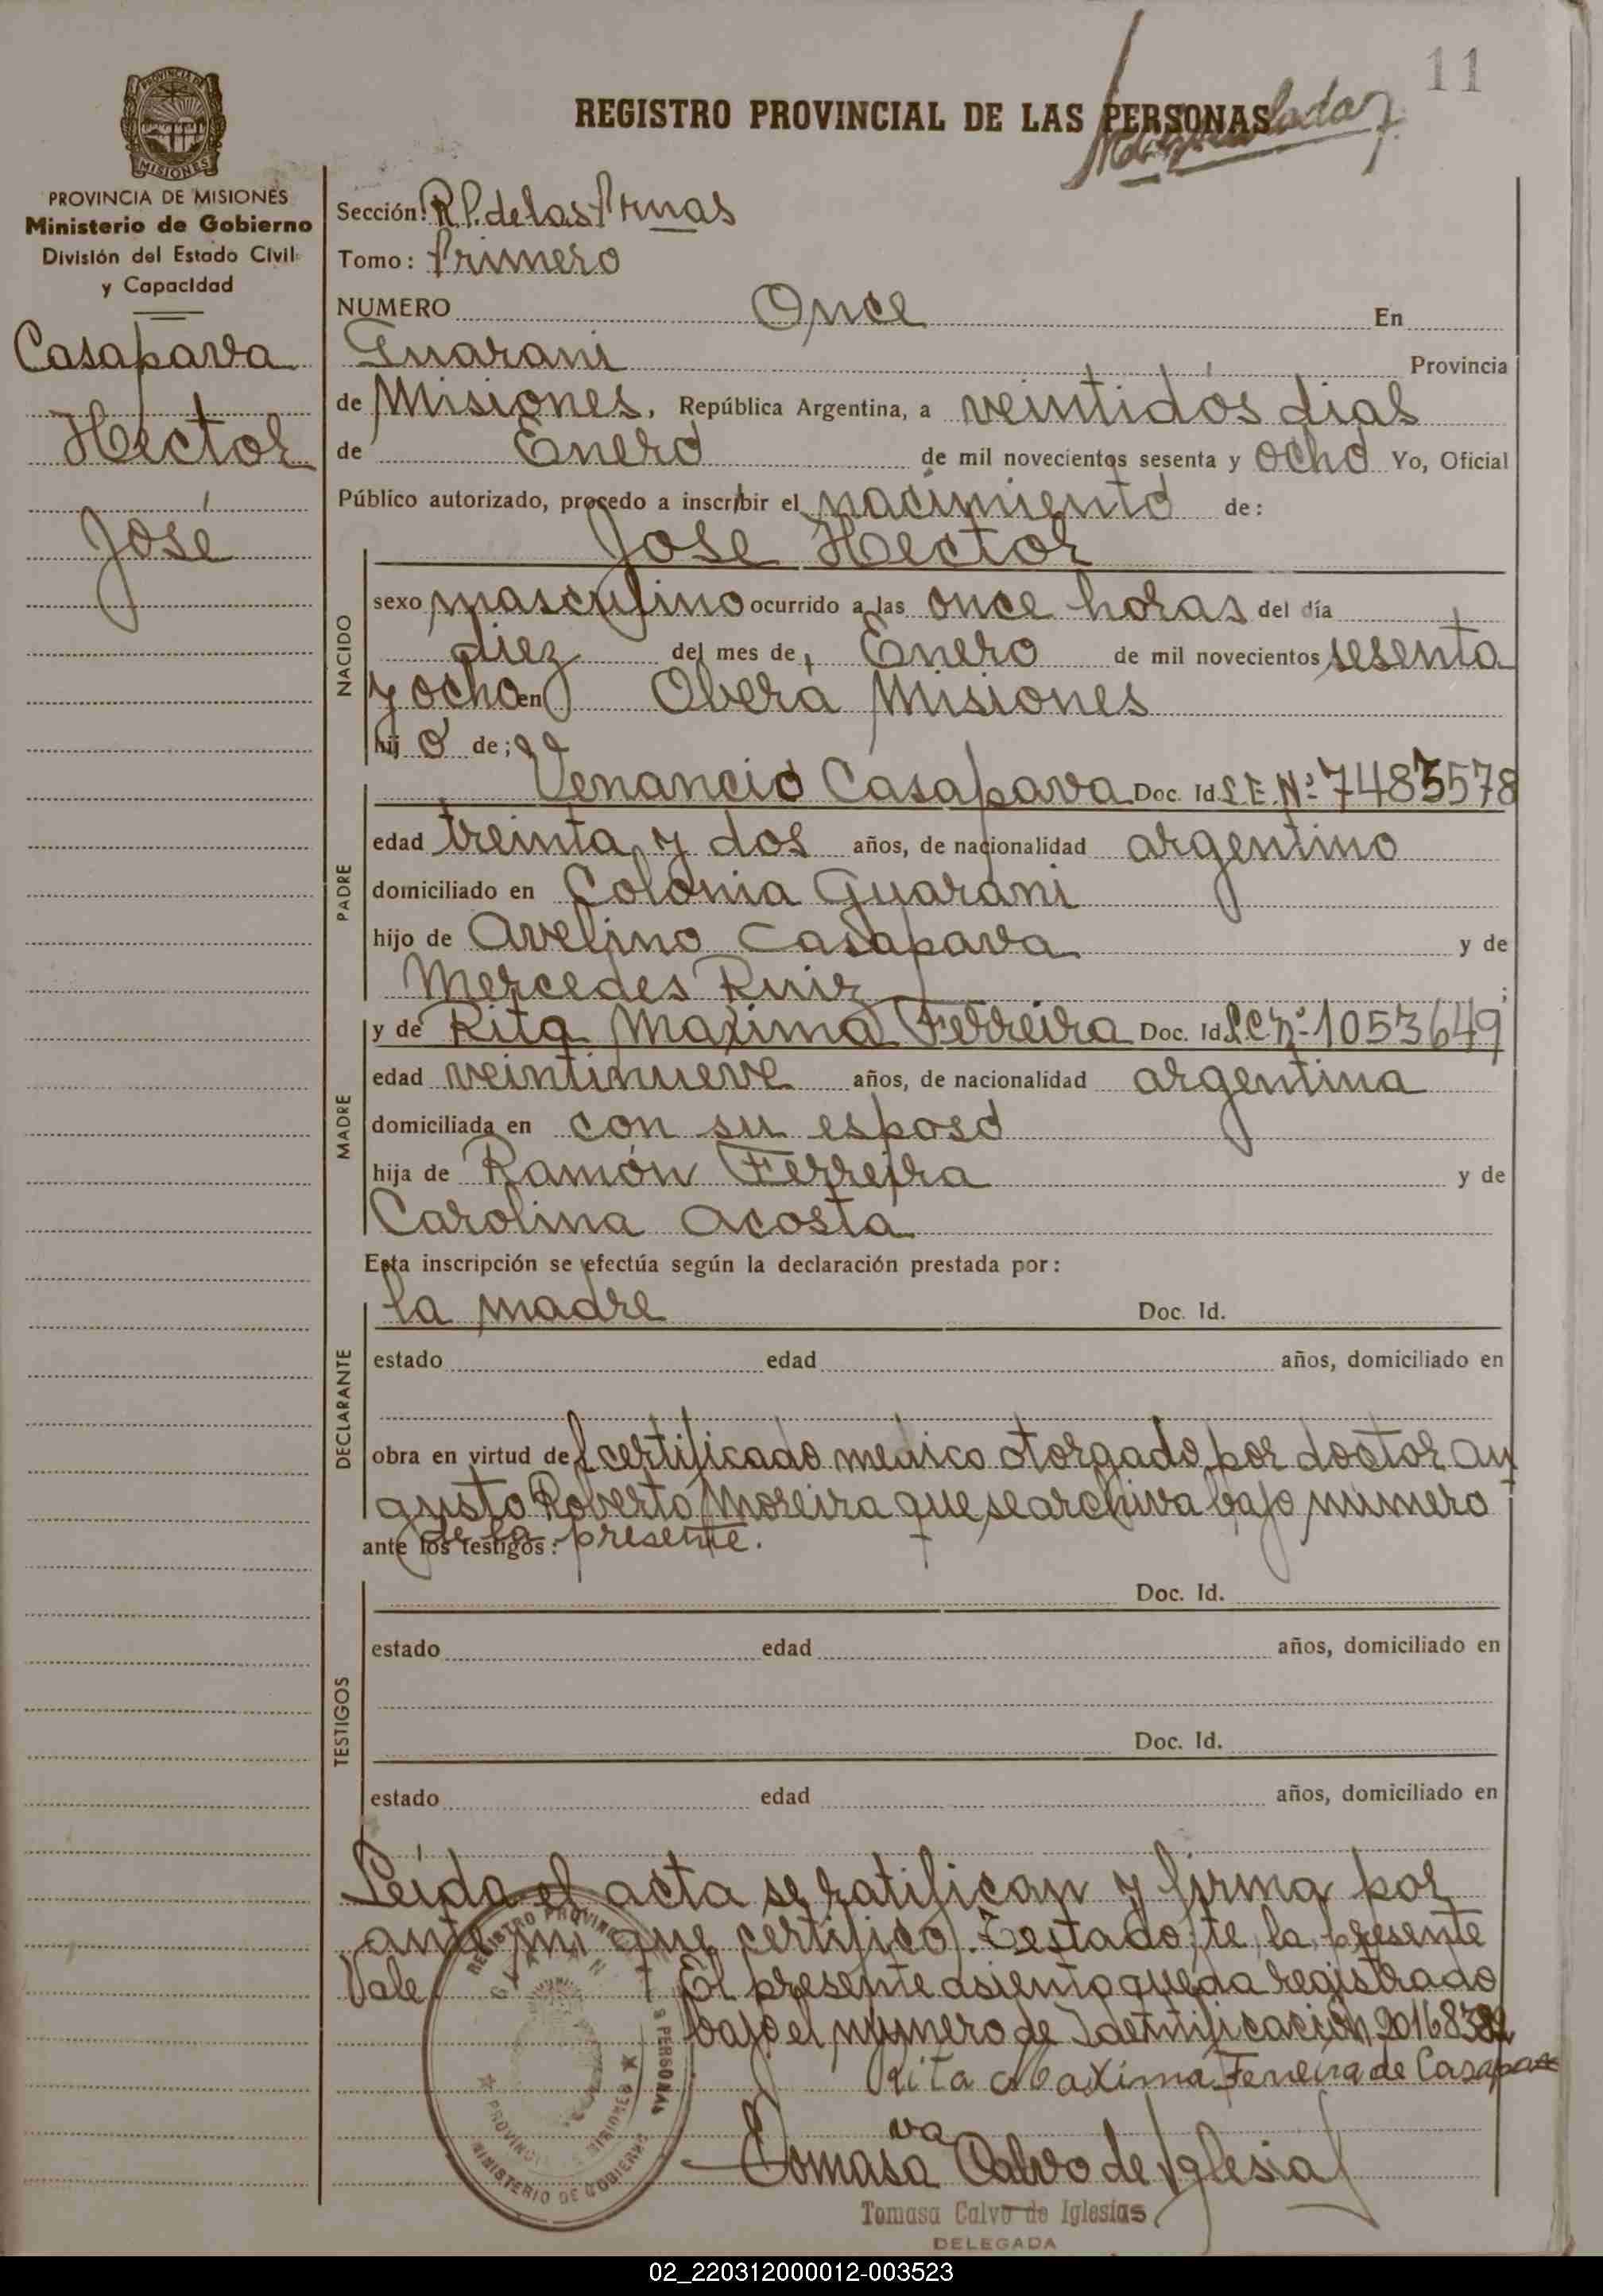 11
REGISTRO PROVINCIAL DE LAS PERSONAS
PROVINCIA DE MISIONES
Ministerio de Gobierno
División del Estado Civil
y Capacidad
Casapava
Hector
José
Sección: R.P. de las Prnas
Tomo: Primero
NUMERO Once En
Guarani Provincia
de Misiones, República Argentina, a veintidós dias
de Enero de mil novecientos sesenta y ocho Yo, Oficial
Público autorizado, procedo a inscribir el nacimiento de:
Jose Hector
NACIDO
sexo masculino ocurrido a las once horas del día
diez del mes de Enero de mil novecientos sesenta
y ocho en Oberá Misiones
hij o de;
PADRE
Venancio Casapava Doc. Id L.E. Nº 7483578
edad treinta y dos años, de nacionalidad argentino
domiciliado en Colonia Guarani
hijo de Avelino Casapava y de
Mercedes Ruiz ;
MADRE
y de Rita Maxima Ferreira Doc. Id L.C. Nº 1053649
edad veintinueve años, de nacionalidad argentina
domiciliada en con su esposo
hija de Ramón Ferreira y de
Carolina Acosta
Esta inscripción se efectúa según la declaración prestada por:
DECLARANTE
la madre Doc. Id.
estado edad años, domiciliado en
obra en virtud del certificado medico otorgado por doctor Au
gusto Roberto Moreira que se archiva bajo numero
ante los testigos: de la presente.
TESTIGOS
Doc. Id.
estado edad años, domiciliado en
Doc. Id.
estado edad años, domiciliado en
Leída el acta se ratifican y firma por
ante mi que certifico. Testado; te, la, presente
Vale. El presente asiento queda registrado
bajo el numero de Identificación 20168382
Rita Maxima Ferreira de Casapa
va
Tomasa Calvo de Iglesias
Tomasa Calvo de Iglesias
DELEGADA
REGISTRO PROVINCIAL
PERSONAS
MINISTERIO DE GOBIERNO
02_220312000012-003523